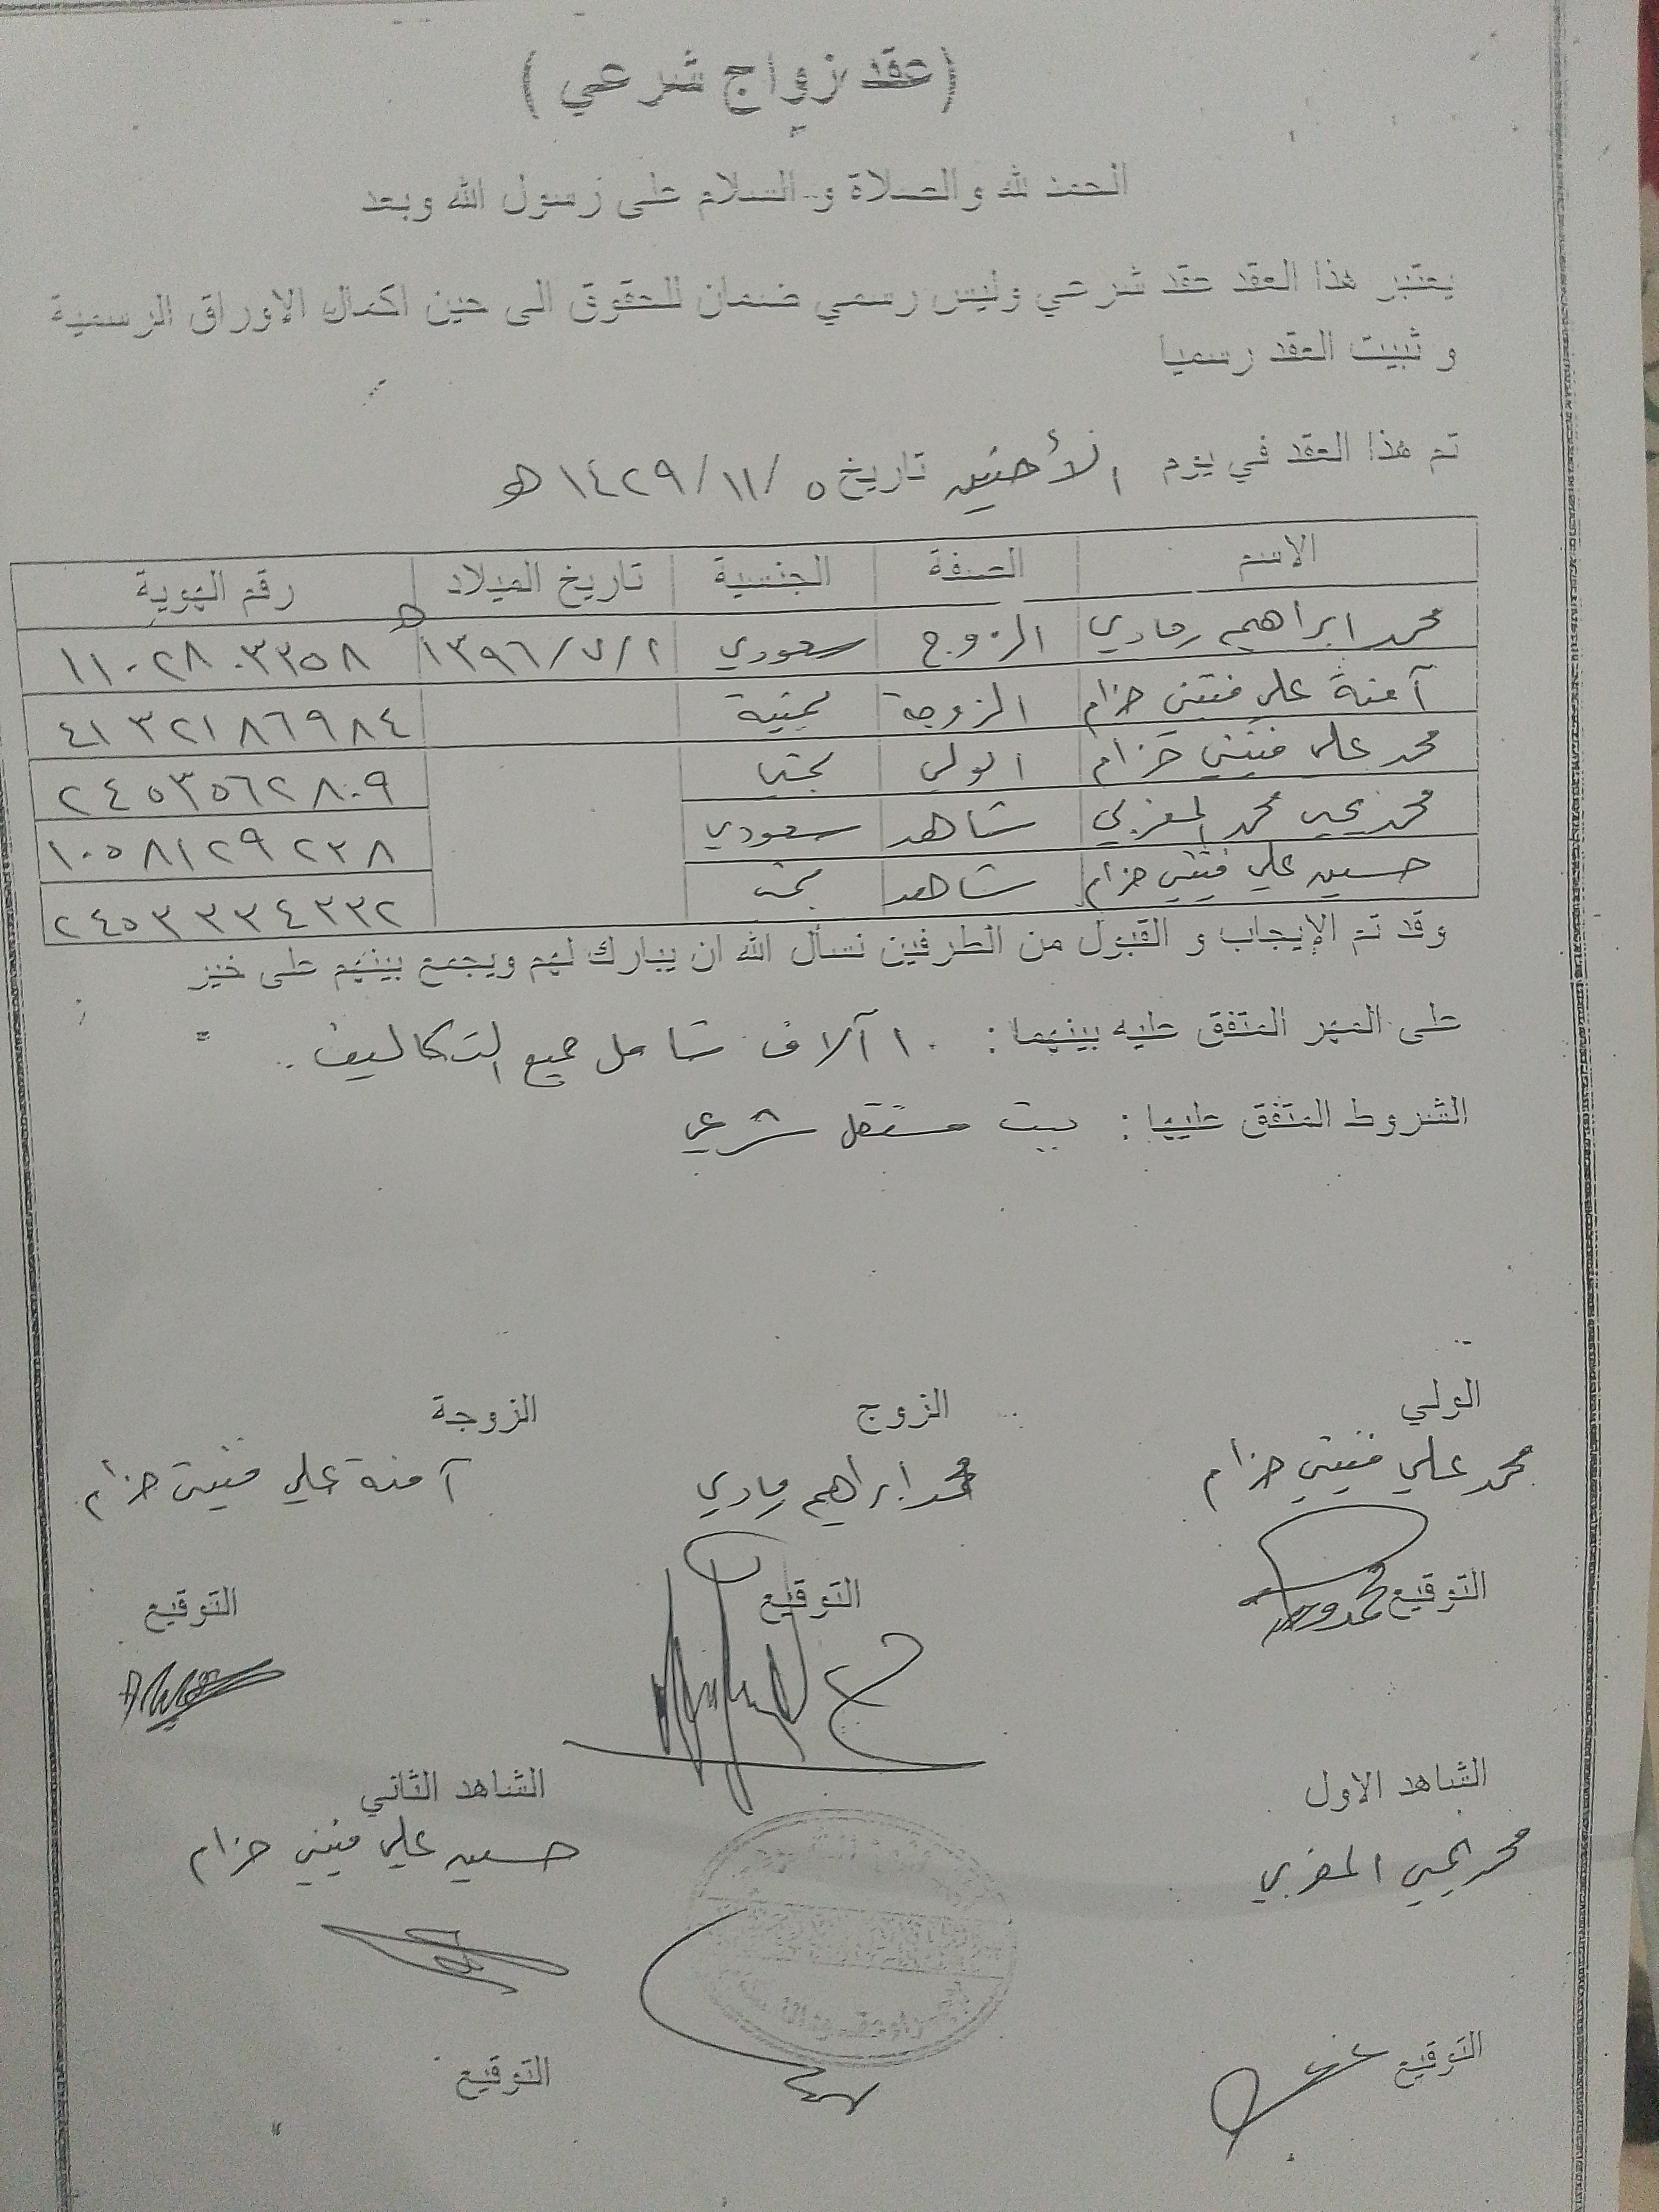 (عقد زواج شرعي)
الحمد لله والصلاة و السلام على رسول الله وبعد
يعتبر هذا العقد عقد شرعي وليس رسمي ضمان للحقوق الى حين اكمال الاوراق الرسمية
و ثبيت العقد رسميا
تم هذا العقد في يوم الأحنين تاريخ ٥ /١١/ ١٤٢٩ هـ
الاسم الصفة الجنسية تاريخ الميلاد رقم الهوية
محمد ابراهيم رمادي الزوج سعودي ١٣٩٦/٧/٢ هـ ١١٠٢٨٠٣٣٥٨
آمنة علي فتيني حزام الزوجة يمنية ٤١٣٢١٨٦٩٨٤
محمد علي فتيني حزام الولي يمني ٢٤٥٣٥٦٢٨٠٩
محمد يحيى محمد المغربي شاهد سعودي ١٠٥٨١٢٩٢٣٨
حسين علي فتيني حزام شاهد يمني ٢٤٥٣٣٣٤٣٣٢
وقد تم الإيجاب و القبول من الطرفين نسأل الله ان يبارك لهم ويجمع بينهم على خير
على المهر المتفق عليه بينهما: ١٠ آلاف شامل جميع التكاليف.
الشروط المتفق عليها: بيت مستقل شرعي
الولي الزوج الزوجة
محمد علي فتيني حزام محمد ابراهيم رمادي آمنة علي فتيني حزام
التوقيع التوقيع التوقيع
الشاهد الاول الشاهد الثاني
محمد يحيى المغربي حسين علي فتيني حزام
التوقيع التوقيع